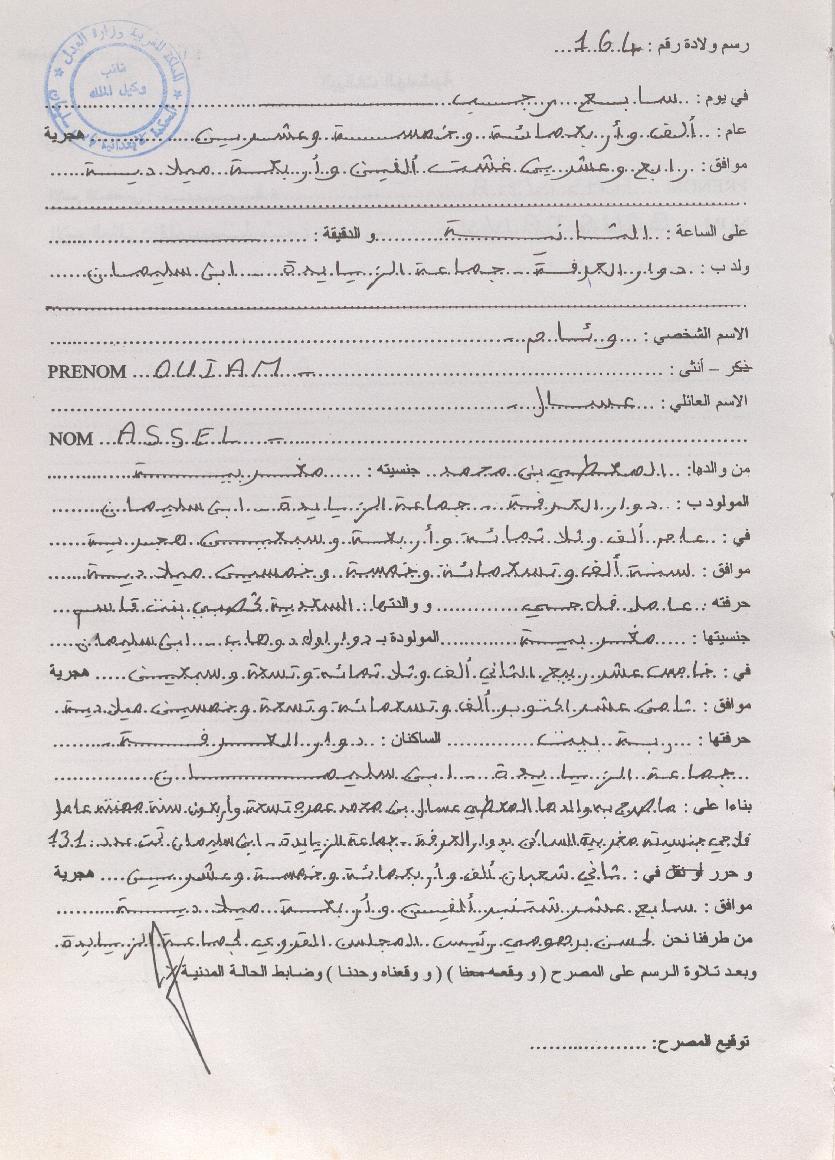 المملكة المغربية وزارة العدل
نائب
وكيل الملك
رسم ولادة رقم : 164
في يوم : سابع رجب
عام : ألف وأربعمائة وخمسة وعشرين هجرية
موافق : رابع وعشرين غشت ألفين وأربعة ميلادية
على الساعة : الثانية و الدقيقة :
ولد ب : دوار العرفة - جماعة الزيايدة - ابن سليمان
الاسم الشخصي : وئام -
ذكر – أنثى :
PRENOM OUIAM -
الاسم العائلي : عسال -
NOM ASSEL -
من والدها : المعطي بن محمد جنسيته : مغربية
المولود ب : دوار العرفة - جماعة الزيايدة - ابن سليمان
في : عام ألف وثلاثمائة وأربعة وسبعين هجرية
موافق : سنة ألف وتسعمائة وخمسة وخمسين ميلادية
حرفته : عامل فلاحي ووالدتها : السعدية بنت قاسم
جنسيتها : مغربية المولودة ب دوار اولاد وهاب - ابن سليمان
في : خامس عشر ربيع الثاني ألف وثلاثمائة وتسعة وسبعين هجرية
موافق : ثامن عشر اكتوبر ألف وتسعمائة وتسعة وخمسين ميلادية
حرفتها : ربة بيت الساكنان : دوار العرفة
جماعة الزيايدة - ابن سليمان
بناءا على : ما صرح به والدها المعطي عسال بن محمد عمره تسعة وأربعون سنة مهنته عامل
فلاحي جنسيته مغربية الساكن بدوار العرفة - جماعة الزيايدة - ابن سليمان تحت عدد : 131
و حرر أو نقل في : ثاني شعبان ألف وأربعمائة وخمسة وعشرين هجرية
موافق : سابع عشر شتنبر ألفين وأربعة ميلادية
من طرفنا نحن لحسن رئيس المجلس القروي لجماعة الزيايدة
وبعد تلاوة الرسم على المصرح ( و وقعه معنا ) ( و وقعناه وحدنا ) وضابط الحالة المدنية
توقيع المصرح: